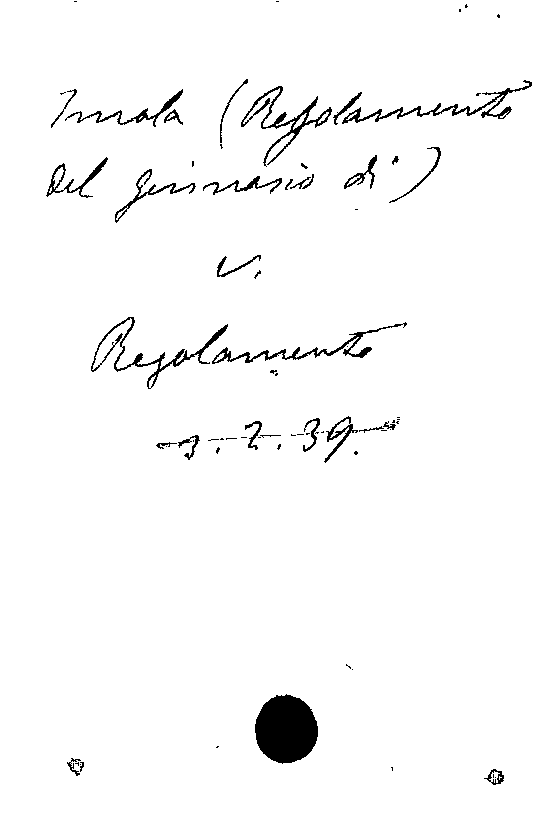 Imola (Regolamento
del ginnasio di)
v.
Regolamento
3.2.39.